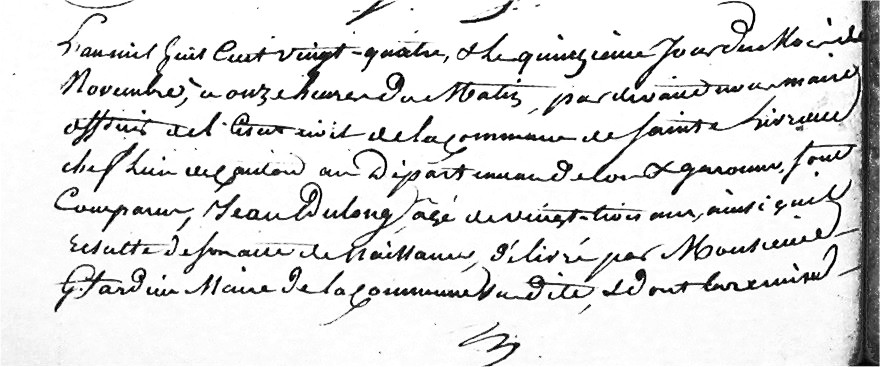 L'an mil huit Cent vingt-quatre, & le quinzième Jour du Mois de
Novembre, à onze heures du Matin, par devant nous maire
officier de l'Etat civil de la Commune de Sainte Livrade
chef lieu de Canton au Département de lot & garonne, sont
Comparus, Jean Dulong, agé de vingt-trois ans, ainsi qu'il
Résulte de son acte de Naissance, Délivré par Monsieur
G. Jardin Maire de la Commune Susdite, & dont la remise